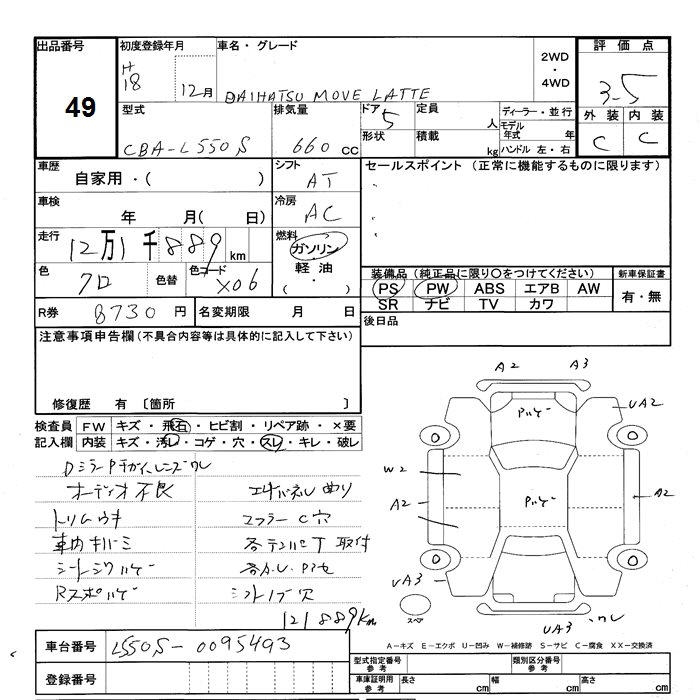 出品番号 初度登録年月 車名・グレード 2WD・4WD 評価点
49 H18 12月 DAIHATSU MOVE LATTE 3-5
外装 内装
C C
型式 排気量 ドア 定員 人 ディーラー・並行
CBA-L550S 660cc 5 形状 積載 kg モデル年式 年
ハンドル 左・右
車歴 シフト セールスポイント (正常に機能するものに限ります)
自家用・( ) AT
車検 冷房
年 月( 日) AC
走行 燃料
12万1千889km ガソリン
軽油
( ・ )
色 色替 色コード
クロ X06
装備品 (純正品に限り〇をつけてください) 新車保証書
PS PW ABS エアB AW 有・無
SR ナビ TV カワ
R券 8730円 名変期限 月 日
後日品
注意事項申告欄 (不具合内容等は具体的に記入して下さい)
修復歴 有 〔箇所 〕
検査員 FW キズ・飛石・ヒビ割・リペア跡・×要
記入欄 内装 キズ・汚レ・コゲ・穴・スレ・キレ・破レ
オーディオ不良
トリムウキ マフラーC穴
車内キバミ 取付
シートシワハゲ
シフトノブ穴
121889km
A2 A3
ハゲ
UA2
W2
A2
ハゲ
A2
UA3
スペア
UA3 ワレ
A-キズ E-エクボ U-凹み W-補修跡 S-サビ C-腐食 XX-交換済
車台番号 L550S-0095493
登録番号
型式指定番号 参考 類別区分番号 参考
車庫証明用 参考 長さ cm 幅 cm 高さ cm